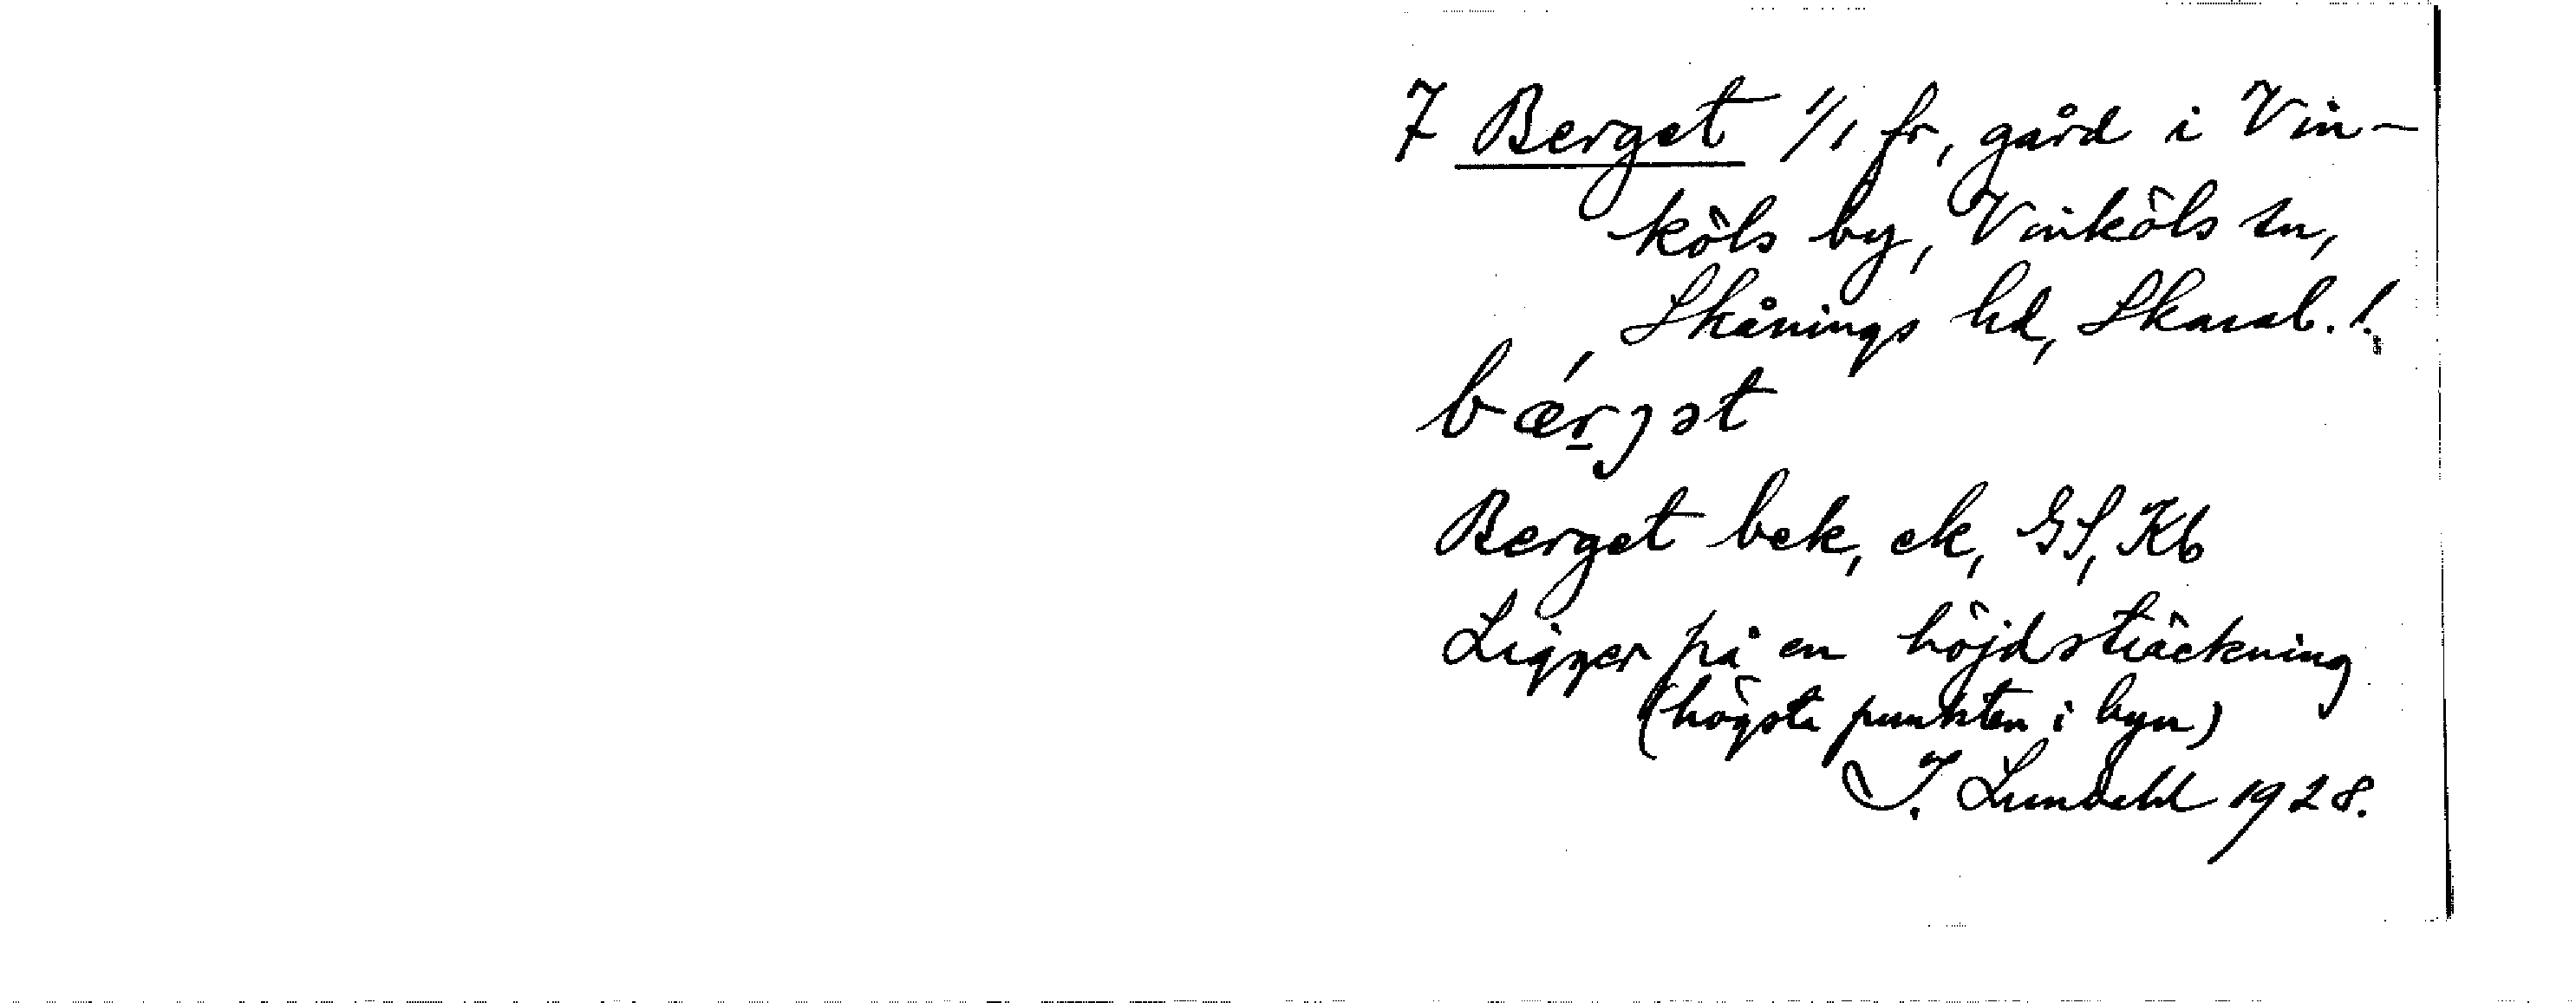 7 Berget 1/1 fr, gård i Vin-
köls by, Vinköls sn,
Skånings hd, Skarab. !
bǽrjət
Berget bek, ek, GS, Kb
Ligger på en höjdsträckning
(högsta punkten i byn)
I. Lundahl 1928.